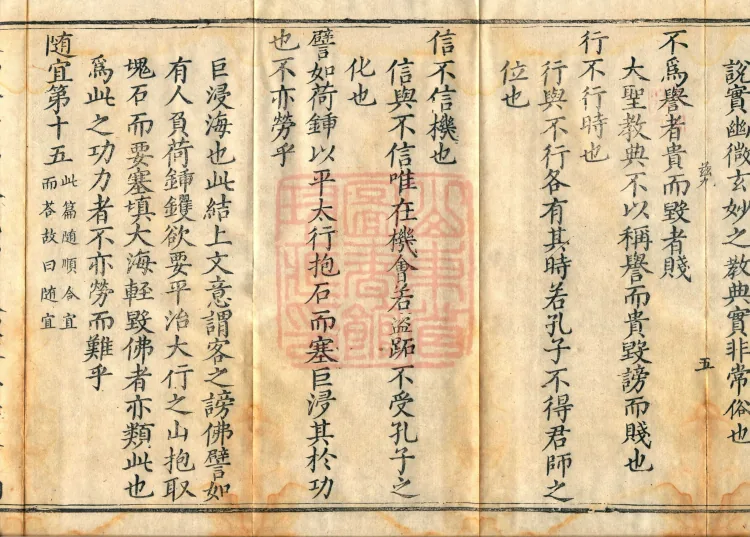 說實幽微玄妙之教典實非常俗也
不爲譽者貴而毀者賤
大聖教典不以稱譽而貴毀謗而賤也
五
行不行時也
行與不行各有其時若孔子不得君師之
位也
信不信機也
信與不信唯在機會若盜跖不受孔子之
化也
譬如荷鍤以平太行抱石而塞巨浸其於功
也不亦勞乎
巨浸海也此結上文意謂客之謗佛譬如
有人負荷鍤钁欲要平治大行之山抱取
塊石而要塞填大海輕毀佛者亦類此也
爲此之功力者不亦勞而難乎
隨宜第十五
此篇隨順合宜
而荅故曰隨宜